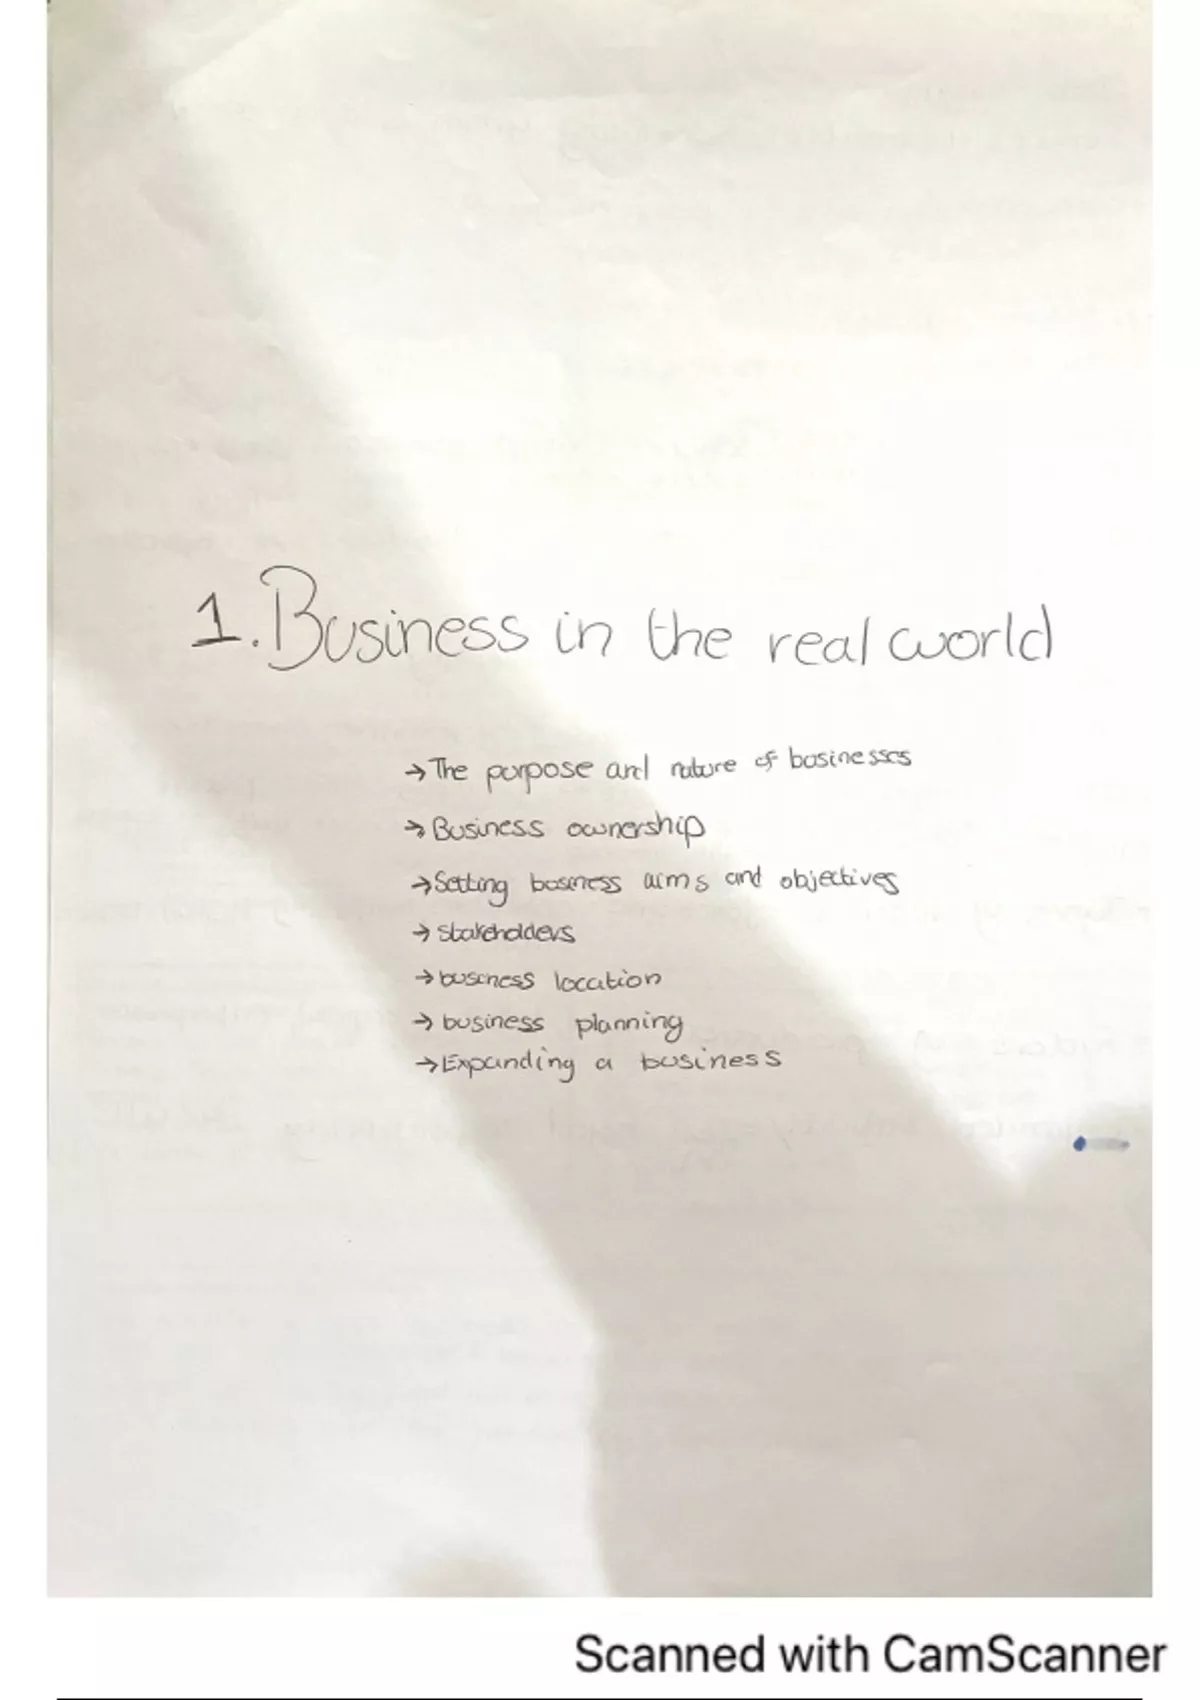 1. Business in the real world
→ The purpose and nature of businesses
→ Business ownership
→ Setting business aims and objectives
→ stakeholders
→ business location
→ business planning
→ Expanding a business
Scanned with CamScanner